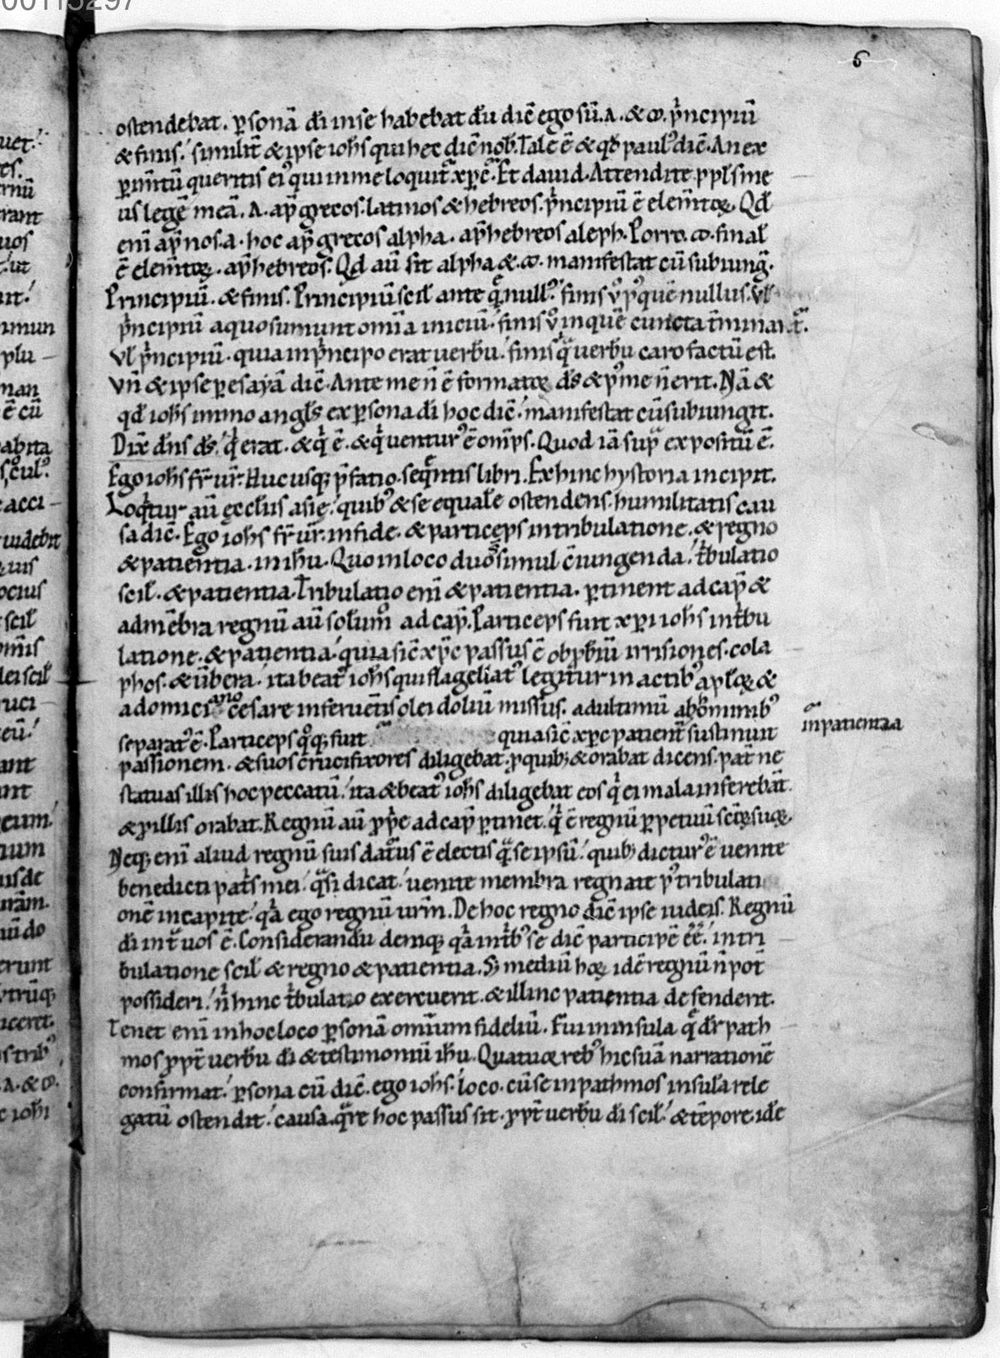 00115297
6
ostendebat. ꝑsonā dī in se habebat dū dic̄ ego sū. A. & ω. p̄ncipiū
& finis. similit̄ & ipse ioh̄s qui hec dic̄ nob̄. Tale ē & qd̄ paul᷒ dic̄. An ex
ꝑim̄tū queritis ei᷒ qui in me loquit̄ xp̄c. Et dauid. Attendite ppl̄s me
us legē meā. A. ap̄ grecos. latinos & hebreos. p̄ncipiū ē elem̄toꝝ. Qd̄
enī ap̄ nos. a. hoc ap̄ grecos alpha. ap̄ hebreos aleph. Porro. ω. final̄
ē elem̄toꝝ. ap̄ hebreos. Qd̄ aū sit alpha & ω. manifestat cū subiunḡ.
Principiū. & finis. Principiū scil̄ ante qͣ null᷒. finis v̊ p᷒ quē nullus. vl̄
p̄ncipiū a quo sumunt om̄ia iniciū. finis v̊ in quē cuncta t̄minant̄.
vl̄ p̄ncipiū. quia in p̄ncipio erat verbū. finis qͣ verbū caro factū est.
Vn̄ & ipse p̄ esayā dic̄. Ante me n̄ ē formatꝰ d̄s & p᷒ me n̄ erit. Nā &
qd̄ ioh̄s immo angl̄s ex ꝑsona dī hoc dic̄. manifestat cū subiungit.
Dix̄ dn̄s d̄s. qⁱ erat. & qⁱ ē. & qⁱ uentur᷒ ē om̄ps. Quod iā supͣ expositū ē.
Ego ioh̄s fr̄ ur̄. Huc usqꝫ p̄fatio. seqͣntis libri. Ex hinc hystoria incipit.
Loqⁱtur aū ęcclīis asię. quib᷒ & se equale ostendens. humilitatis cau
sa dic̄. Ego ioh̄s fr̄ ur̄. in fide. & particeps in tribulatione. & regno
& patientia. in ih̄u. Quo in loco duo simul c̄iungenda. t̄bulatio
scil̄. & patientia. Tribulatio enī & patientia. ꝑtinent ad cap̄ &
ad mēbra regnū aū solum̊ ad cap̄. Particeps fuit xp̄i ioh̄s in t̄bu
latione. & patientia. quia sic̄ xp̄c passus ē obp̄briū irrisiones. cola
phos. & ūbera. ita beat᷒ ioh̄s qui flagellat᷒ legitur in actib᷒ apl̄oꝝ &
a domicīano cesare in feruētis olei doliū missus. ad ultimū ab hōminib᷒
separat᷒ ē. Particeps qͦqꝫ fuit quia sic̄ xp̄c patient̄ sustinuit
in patientia
passionem. & suos crucifixores diligebat. ꝓ quibꝫ & orabat dicens. pat̄ ne
statuas illis hoc peccatū. ita & beat᷒ ioh̄s diligebat eos qⁱ ei mala inferebāt.
& ꝓ illis orabat. Regnū aū ꝓp̄e ad cap̄ ꝑtinet. qⁱ ē regnū ꝑpetuū sc̄oꝝ suoꝝ.
Neqꝫ enī aliud regnū suis daturus ē electis qͣ se ipsū. quibꝫ dictur᷒ ē venite
benedicti pat̄s mei. qͣsi dicat. uenite membra regnate p᷒ tribulati
onē in capite. qⁱa ego regnū ur̄m. De hoc regno dic̄ ipse iudeis. Regnū
dī int̄ uos ē. Considerandū deniqꝫ qⁱa in t̄b᷒ se dic̄ participē ēē. in tri
bulatione scil̄ & regno & patientia. Sꝫ mediū hoꝝ idē regnū n̄ pot̄
possideri. n̄ hinc t̄bulatio exercuerit. & illinc patientia defenderit.
Tenet enī in hoc loco ꝑsonā omnium fideliū. Fui in insula qͣ dr̄ path
mos ꝓpt̄ verbū dī & testimoniū ih̄u. Quatuor reb᷒ hic suā narrationē
confirmat. ꝑsona cū dic̄. ego ioh̄s. loco. cū se in pathmos insula rele
gatū ostendit. causa. qͣre hoc passus sit. ꝓpt̄ verbū dī scil̄. & tēpore. idē